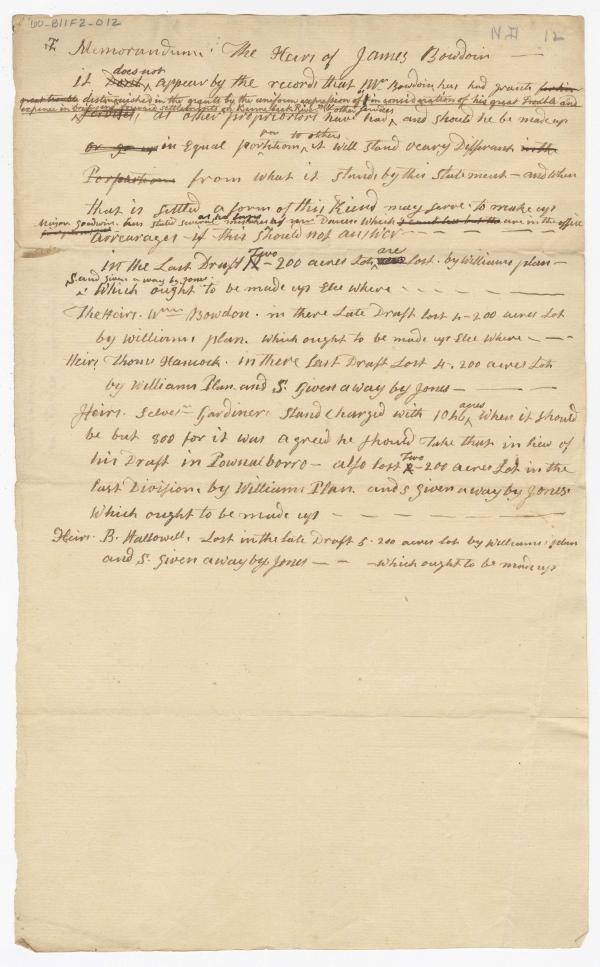 60-B11F2-012
ND 12
Memorandum: The Heirs of James Bowdoin —
does not
It appear by the records that Mr. Bowdoin has had grants
great trouble distinguished in the grants by the uniform expression of in consideration of his great Trouble and
expence in settlements on Kennebeck River & other services
as other proprietors have had, and should he be made up
on to others
or go up in Equal portition, it will stand veary Diffirant
from what it stands by this Statement — and when
that is Settled a form of this Kiend may serve to make up
Major Goodwin has stated several mistakes as Dances which are in the office
arrearages — if this should not answer — — — —
In the Last Draft Two 200 acres Lots are lost by Williams plan —
5. and given away by Jones
which ought to be made up Else where — — — —
The Heirs Wm. Bowdoin in there Late Draft lost 4-200 acres Lot
by Williams plan. which ought to be made up Else where — — —
Heirs Thomas Hancock in there Last Draft Lost 4. 200 acres Lots
by Williams Plan and 5. given away by Jones — — —
Heirs Selvesr. Gardiner: Stand Charged with acres when it should
be but 800 for it was agreed he should Take that in liew of
his Draft in Pownalborro — also lost Two — 200 acres Lot in the
last Division by Williams Plan and 5 given away by Jones
which ought to be made up — — — —
Heirs B. Hallowell Lost in the Late Draft 5. 200 acres Lot by Williams plan
and 5. given away by Jones — — — which ought to be made up